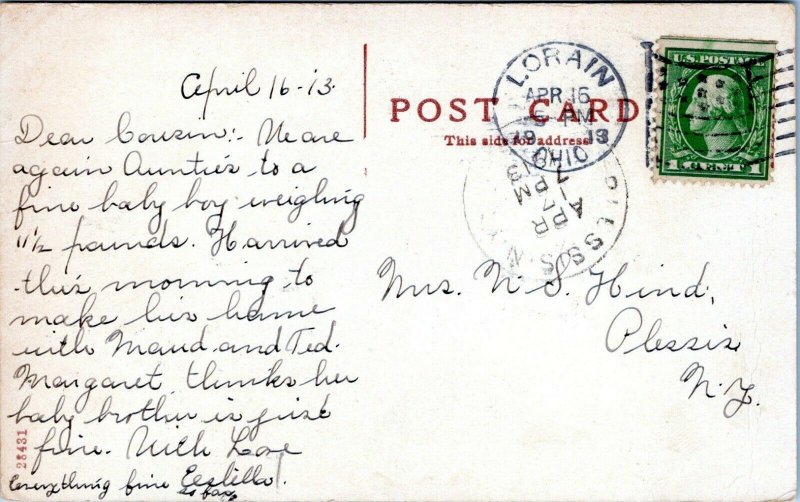 April 16-13.
Dear Cousin:- We are
again Aunties to a
fine baby boy weighing
11½ pounds. He arrived
this morning to
make his home
with Maud and Ted.
Margaret thinks her
baby brother is just
fine. With Love
Everything fine
so far.
28431
POST CARD
This side for address
LORAIN
APR 16
5-PM
1913
OHIO
PLESSIS
N.Y.
APR
17
1913
U.S. POSTAGE
1 CENT 1
Mrs. N. S. Hind,
Plessis
N.Y.